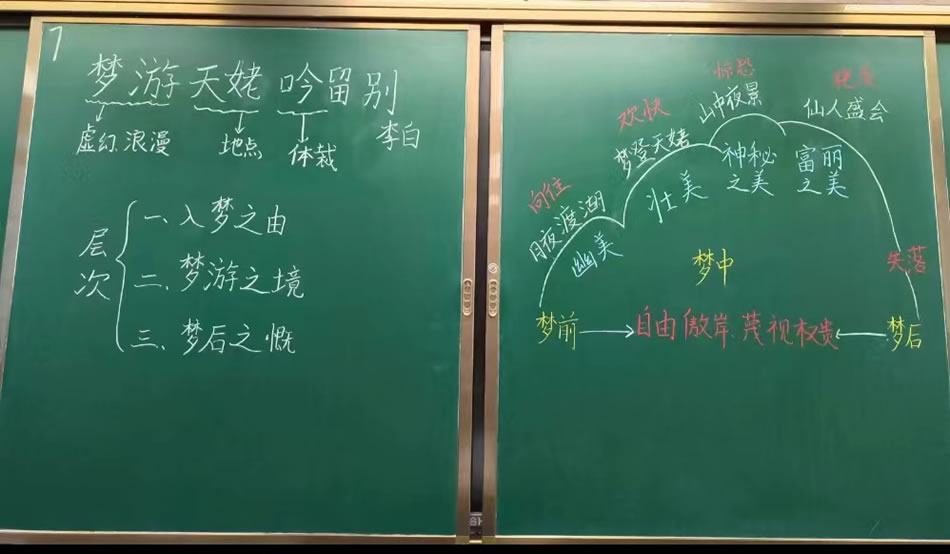 7
梦游天姥吟留别
虚幻 浪漫 地点 体裁 李白
层次
一、入梦之由
二、梦游之境
三、梦后之慨
向往
月夜渡湖
幽美
欢快
梦登天姥
壮美
惊恐
山中夜景
神秘之美
仙人盛会
富丽之美
失落
梦中
梦前
自由傲岸.蔑视权贵
梦后